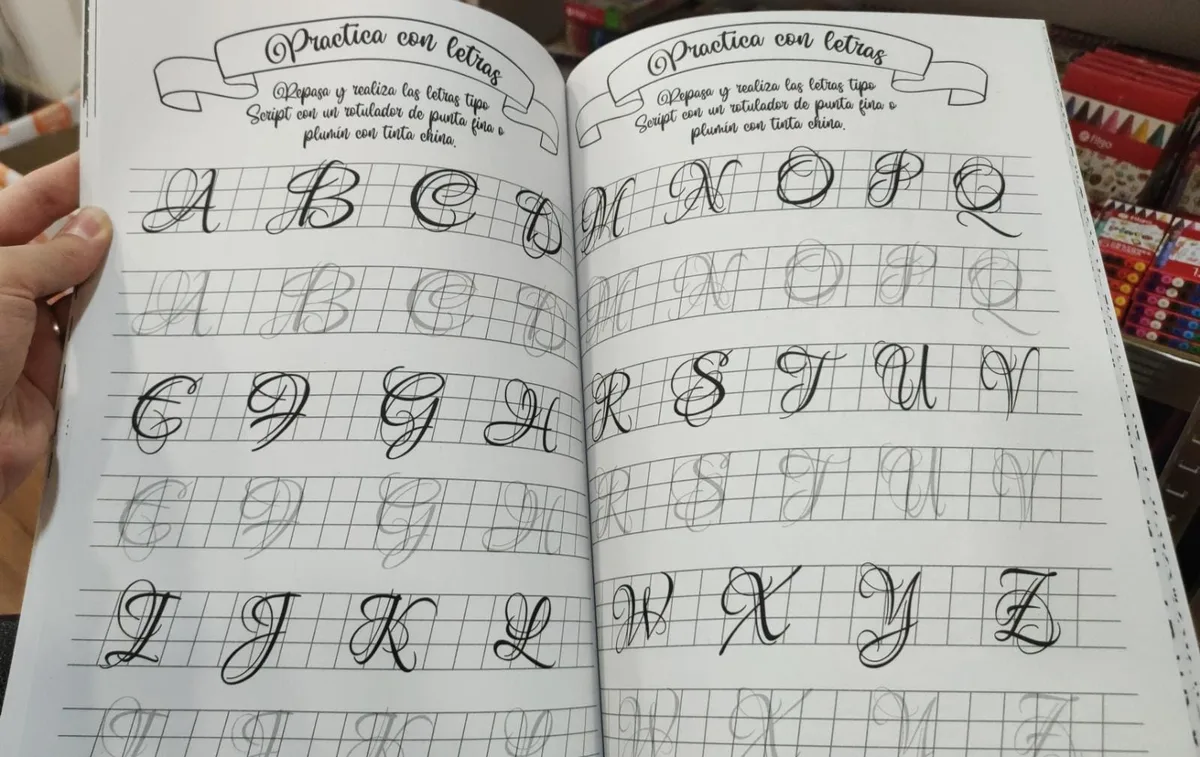 Practica con letras
Repasa y realiza las letras tipo
Script con un rotulador de punta fina o
plumín con tinta china.
A B C D
A B C D
E F G H
E F G H
I J K L
I J K L
Practica con letras
Repasa y realiza las letras tipo
Script con un rotulador de punta fina o
plumín con tinta china.
M N O P Q
M N O P Q
R S T U V
R S T U V
W X Y Z
W X Y Z